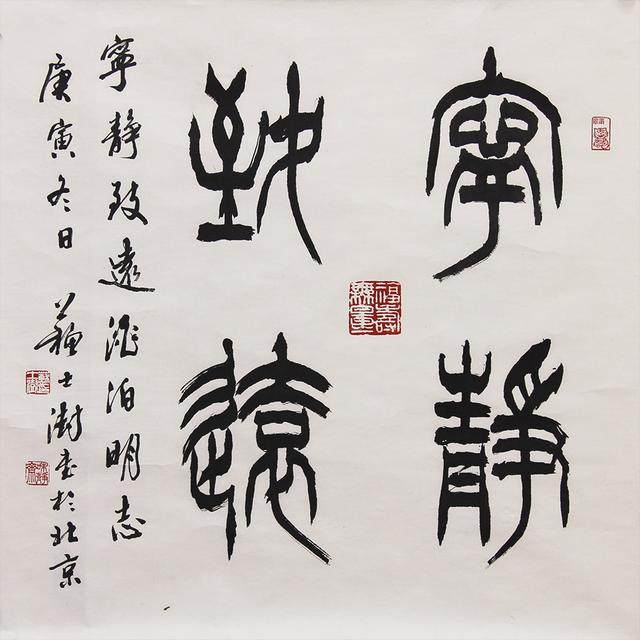 寧靜
致遠
寧靜致遠澹泊明志
庚寅冬日蘇士澍書於北京
福壽無量